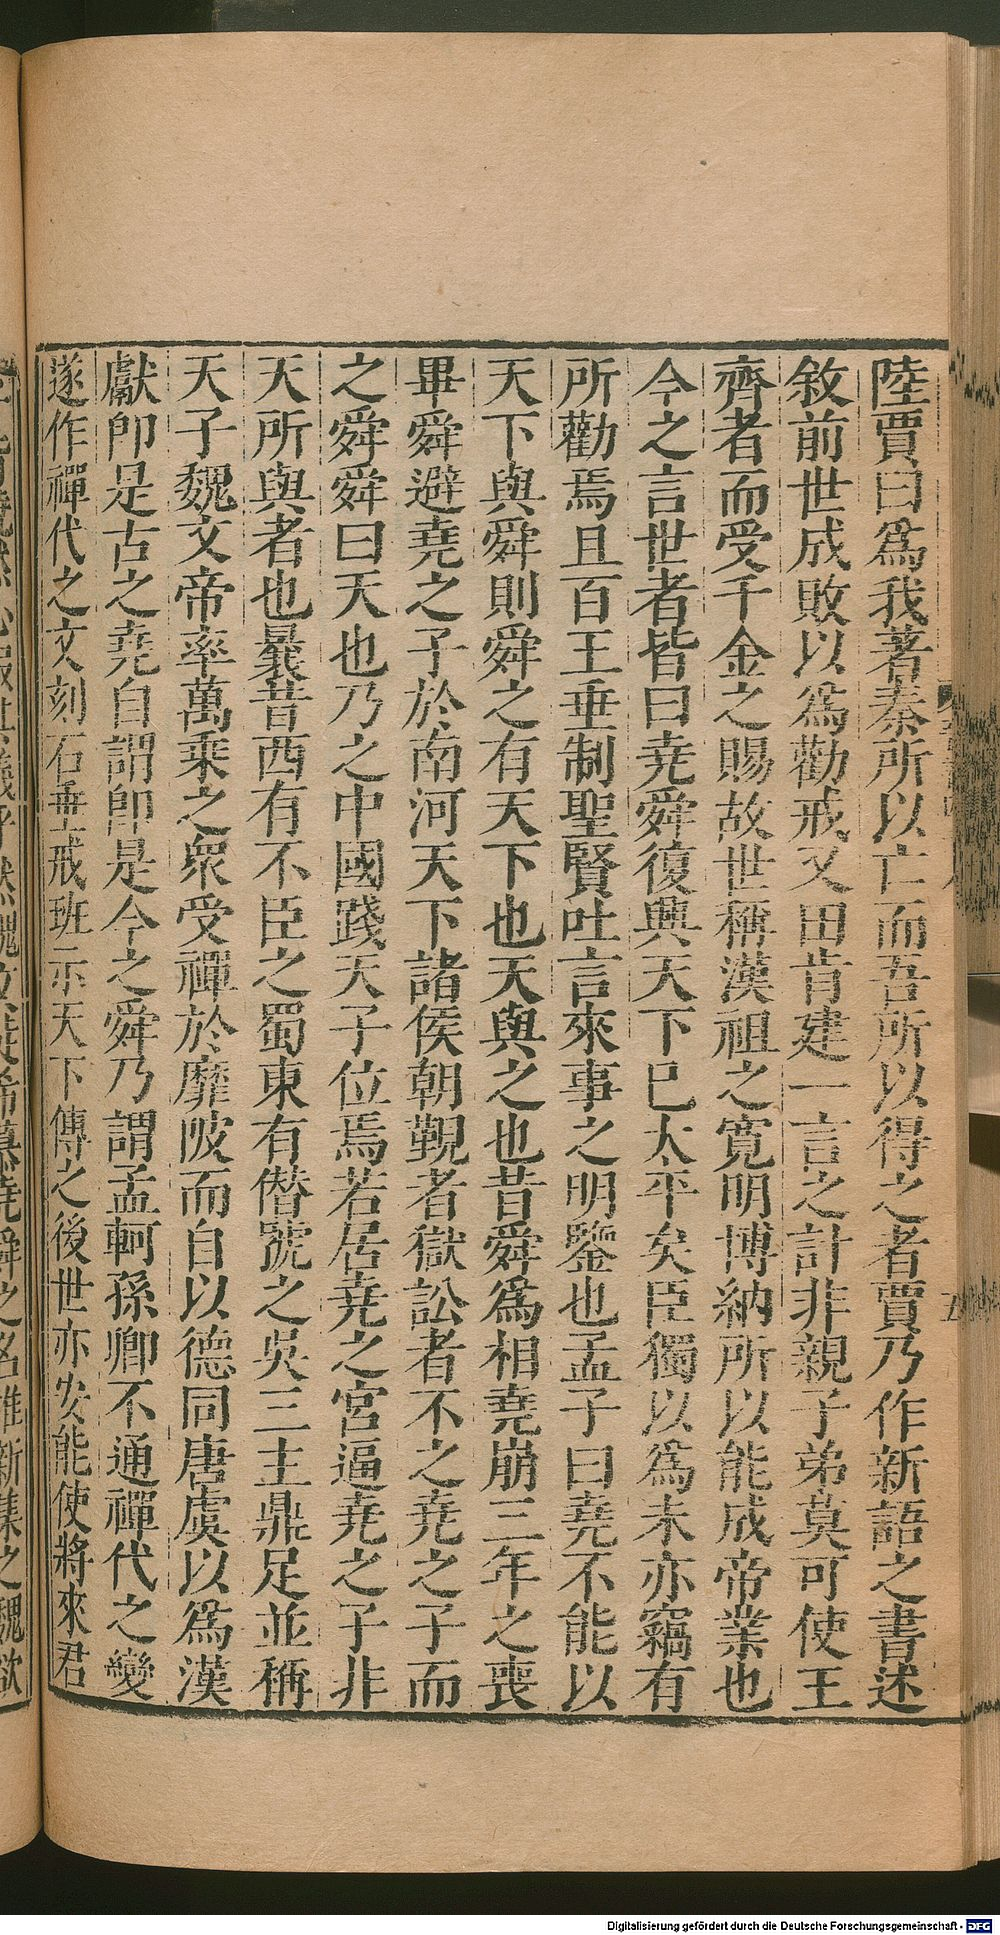 陸賈曰爲我著秦所以亡而吾所以得之者賈乃作新語之書述
敘前世成敗以爲勸戒又田肯建一言之計非親子弟莫可使王
齊者而受千金之賜故世稱漢祖之寬明博納所以能成帝業也
今之言世者皆曰堯舜復興天下巳太平矣臣獨以爲未亦竊有
所勸焉且百王垂制聖賢吐言來事之明鑒也孟子曰堯不能以
天下與舜則舜之有天下也天與之也昔舜爲相堯崩三年之喪
畢舜避堯之子於南河天下諸侯朝覲者獄訟者不之堯之子而
之舜舜曰天也乃之中國踐天子位焉若居堯之宮逼堯之子非
天所與者也曩昔西有不臣之蜀東有僭號之吳三主鼎足並稱
天子魏文帝率萬乘之衆受禪於靡陂而自以德同唐虞以爲漢
獻卽是古之堯自謂卽是今之舜乃謂孟軻孫卿不通禪代之變
遂作禪代之文刻石垂戒班示天下傳之後世亦安能使將來君
堯舜之名推新集之魏欲
Digitalisierung gefördert durch die Deutsche Forschungsgemeinschaft - DFG